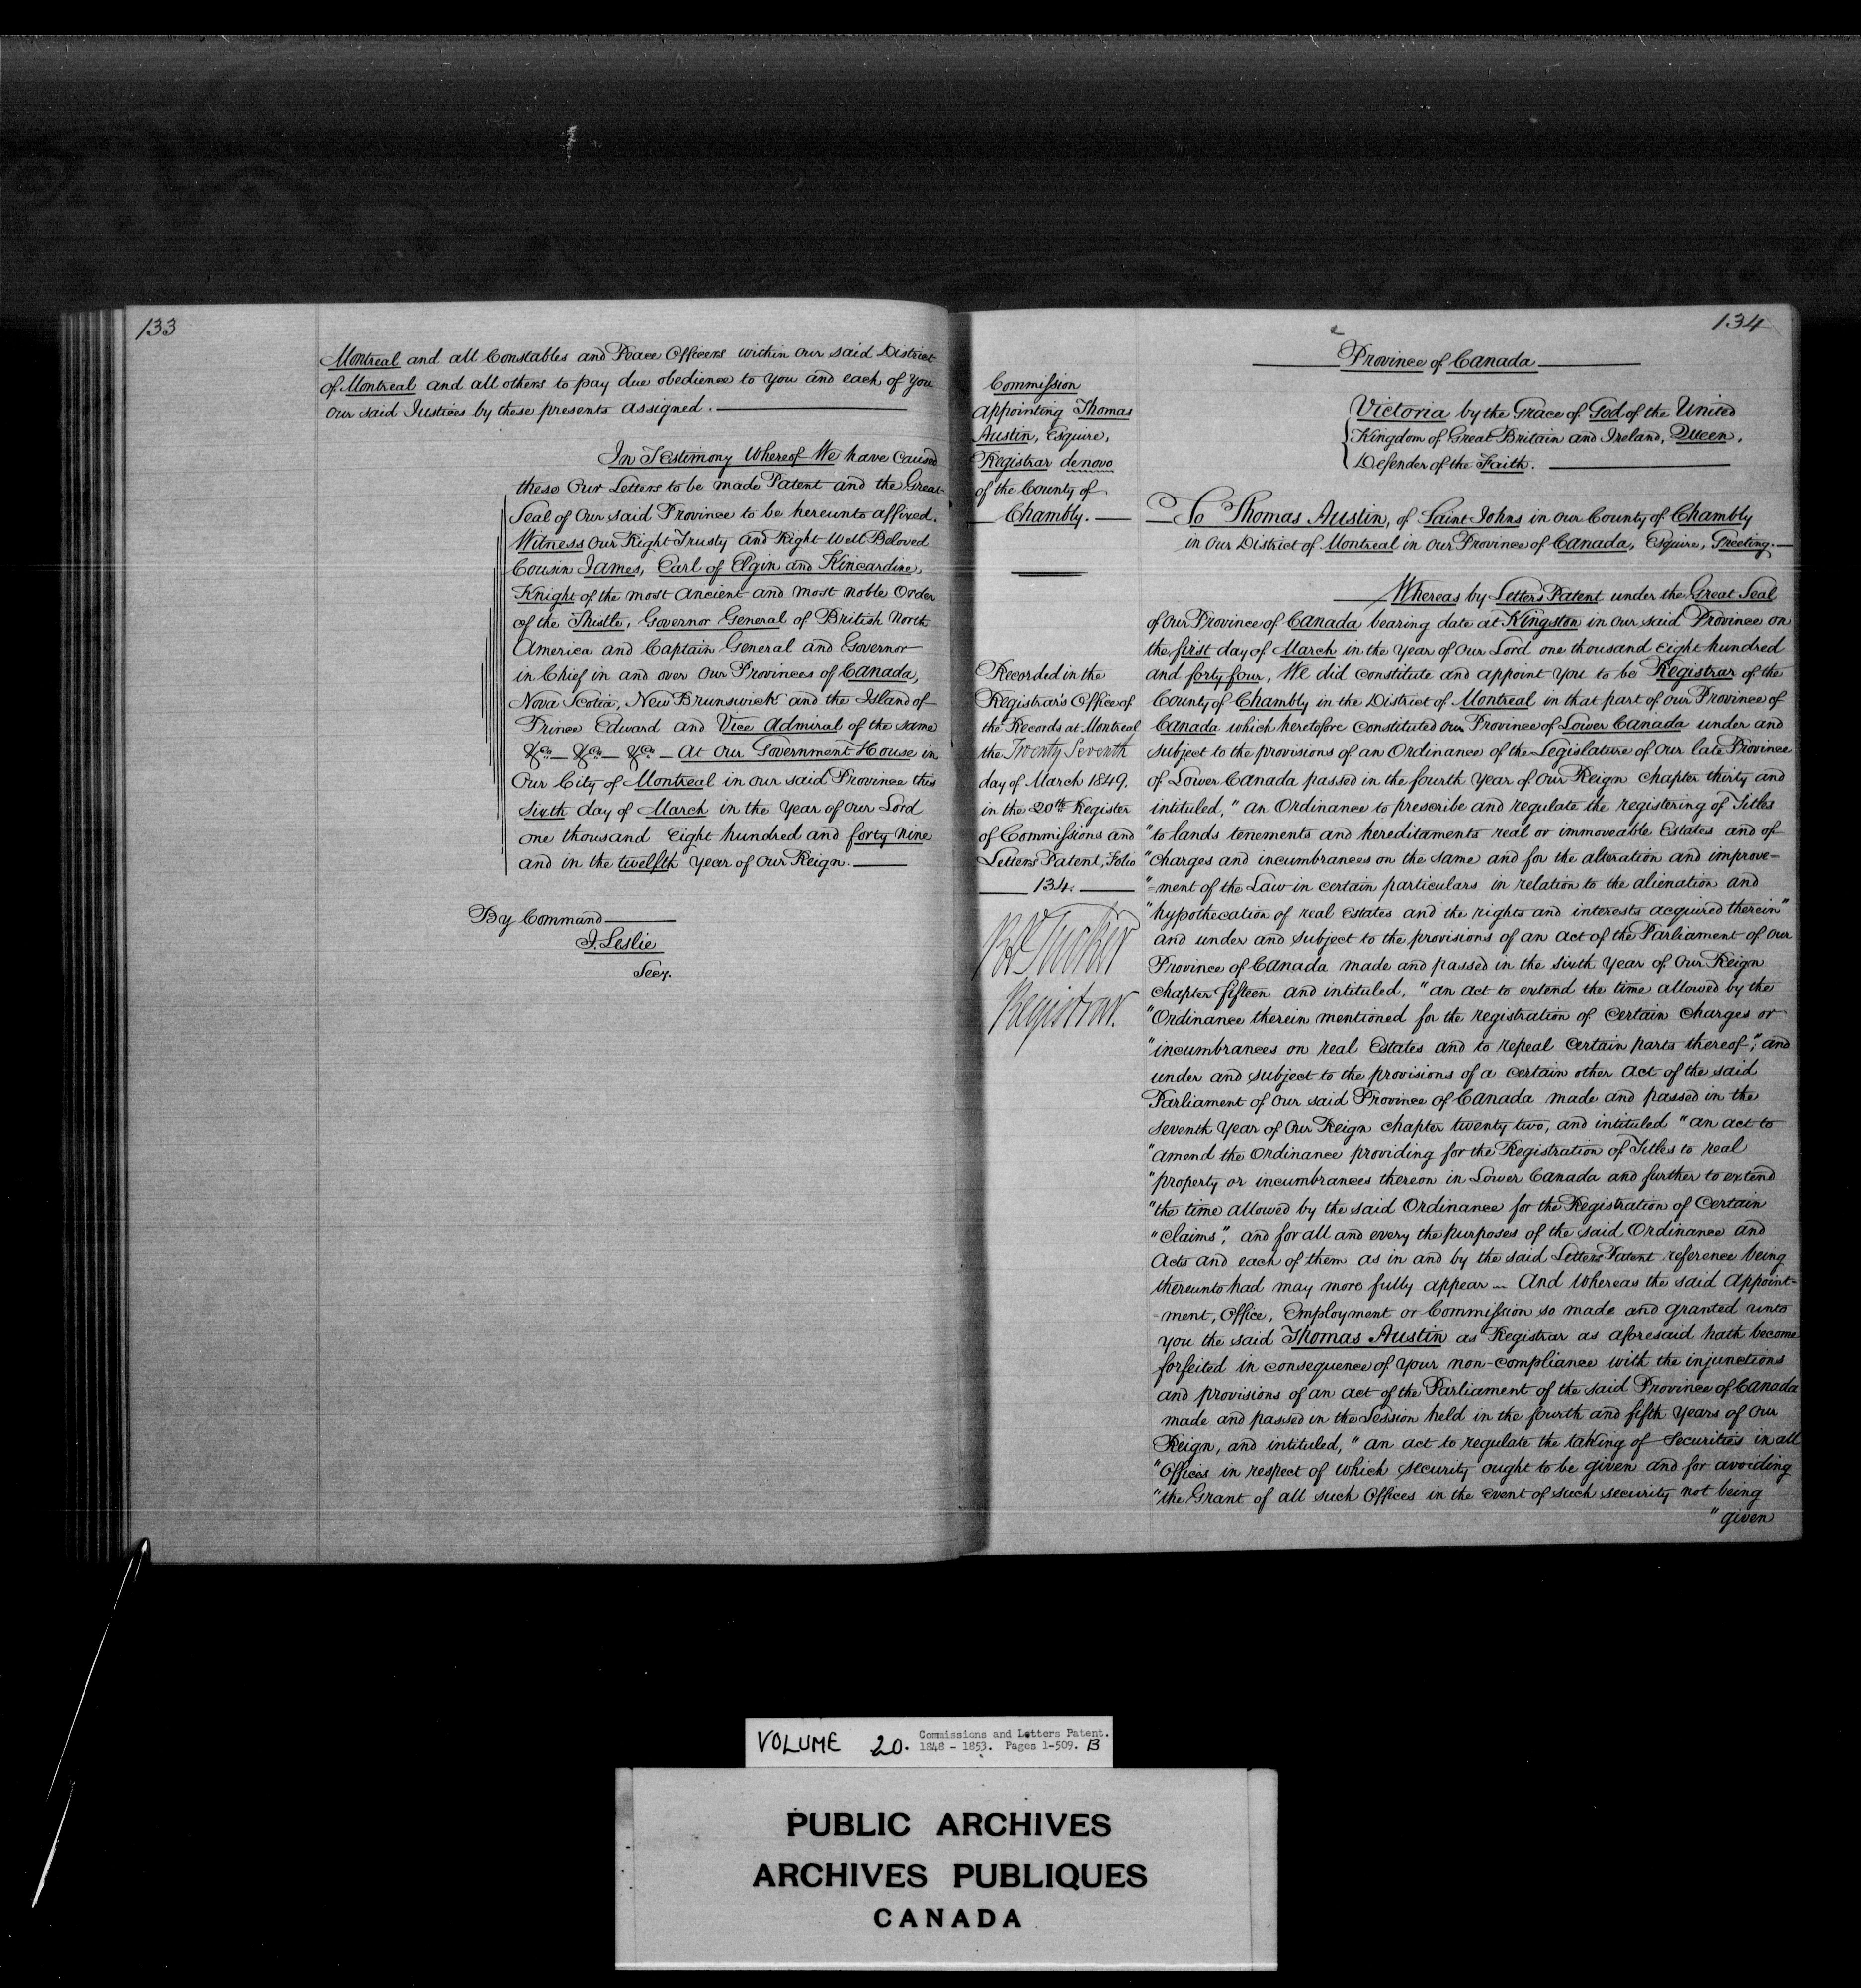 133
Montreal and all Constables and Peace Officers within our said District
of Montreal and all others to pay due obedience to you and each of you
our said Justices by these presents assigned.
In Testimony Whereof We have caused
these Our Letters to be made Patent and the Great
Seal of Our said Province to be hereunto affixed.
Witness Our Right Trusty and Right Well Beloved
Cousin James, Earl of Elgin and Kincardine,
Knight of the most Ancient and most noble Order
of the Thistle, Governor General of British North
America and Captain General and Governor
in Chief in and over Our Provinces of Canada,
Nova Scotia, New Brunswick and the Island of
Prince Edward and Vice Admiral of the same
&ca — &ca — &ca — At Our Government House in
Our City of Montreal in our said Province this
sixth day of March in the Year of Our Lord
one thousand Eight hundred and forty nine
and in the twelfth Year of Our Reign.
By Command
J. Leslie
Secy.
134
Province of Canada
Commission
appointing Thomas
Austin, Esquire,
Registrar de novo
of the County of
Chambly.
Recorded in the
Registrar's Office of
the Records at Montreal
the Twenty Seventh
day of March 1849.
in the 20th Register
of Commissions and
Letters Patent, Folio
134.
Tucker
Registrar.
Victoria by the Grace of God of the United
Kingdom of Great Britain and Ireland, Queen,
Defender of the Faith.
To Thomas Austin, of Saint Johns in our County of Chambly
in Our District of Montreal in Our Province of Canada, Esquire, Greeting.
Whereas by Letters Patent under the Great Seal
of Our Province of Canada bearing date at Kingston in our said Province on
the first day of March in the Year of Our Lord one thousand Eight hundred
and forty four, We did constitute and appoint You to be Registrar of the
County of Chambly in the District of Montreal in that part of our Province of
Canada which heretofore Constituted our Province of Lower Canada under and
subject to the provisions of an Ordinance of the Legislature of Our late Province
of Lower Canada passed in the fourth Year of Our Reign Chapter thirty and
intituled, "an Ordinance to prescribe and regulate the registering of Titles
"to lands tenements and hereditaments real or immoveable Estates and of
"charges and incumbrances on the same and for the alteration and improve=
"=ment of the Law in certain particulars in relation to the alienation and
"hypothecation of real Estates and the rights and interests acquired therein"
and under and subject to the provisions of an act of the Parliament of Our
Province of Canada made and passed in the sixth Year of Our Reign
Chapter fifteen and intituled, "an act to extend the time allowed by the
"Ordinance therein mentioned for the registration of Certain Charges or
"incumbrances on real Estates and to repeal Certain parts thereof", and
under and subject to the provisions of a certain other act of the said
Parliament of Our said Province of Canada made and passed in the
seventh Year of Our Reign Chapter twenty two, and intituled "an act to
"amend the Ordinance providing for the Registration of Titles to real
"property or incumbrances thereon in Lower Canada and further to extend
"the time allowed by the said Ordinance for the Registration of Certain
"Claims", and for all and every the purposes of the said Ordinance and
Acts and each of them as in and by the said Letters Patent reference being
thereunto had may more fully appear — And Whereas the said appoint=
=ment, Office, Employment or Commission so made and granted unto
you the said Thomas Austin as Registrar as aforesaid hath become
forfeited in consequence of Your non-compliance with the injunctions
and provisions of an act of the Parliament of the said Province of Canada
made and passed in the Session held in the fourth and fifth Years of Our
Reign, and intituled, "an act to regulate the taking of Securities in all
"Offices in respect of which security ought to be given and for avoiding
"the Grant of all such Offices in the event of such security not being
"given
VOLUME 20. Commissions and Letters Patent.
1848 - 1853. Pages 1-509. B
PUBLIC ARCHIVES
ARCHIVES PUBLIQUES
CANADA